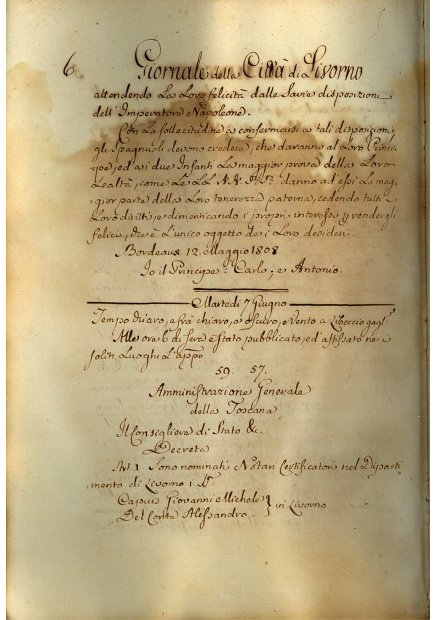 6 Giornale della Città di Livorno
attendendo La Loro felicità dalle Savie disposizioni
dell' Imperatore Napoleone.
Con La sollecitudine a conformarsi a tali disposizioni,
gli Spagnuoli devono credere, che daranno al Loro Princi
pe, ed ai due Infanti La maggior prova della Loro
Lealtà, come Le LL. AA. RR. danno ad essi La mag
gior parte della Loro tenerezza paterna, cedendo tutti
Loro diritti, e dimenticando i proprj interessi p renderli
felici, che è L'unico oggetto de i Loro desideri.
Bordeaux 12. Maggio 1808
Io il Principe: Carlo; e Antonio.
Martedi 7 Giugno
Tempo chiaro, e oscuro, Vento a Libeccio gagl.
Alle ore 6 di Sera è stato pubblicato, ed affissato ne i
soliti Luoghi L'appo
59. 57.
Amministrazione Generale
della Toscana
Il Consigliere di Stato &c.
Decreta
Art. 1 Sono nominati Notari Certificatori nel Diparti
mento di Livorno i SS.
Capuis Giovanni Michele } in Livorno
Del Conte Alessandro